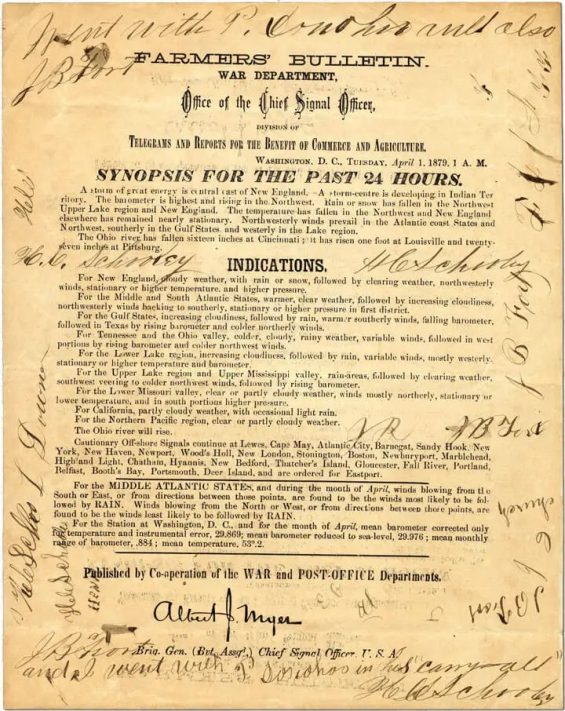 Went with P. Donoho and also
J B Fort
FARMERS' BULLETIN.
WAR DEPARTMENT,
Office of the Chief Signal Officer,
DIVISION OF
TELEGRAMS AND REPORTS FOR THE BENEFIT OF COMMERCE AND AGRICULTURE.
WASHINGTON, D. C., TUESDAY, April 1, 1879, 1 A. M.
SYNOPSIS FOR THE PAST 24 HOURS.
A storm of great energy is central east of New England. A storm-centre is developing in Indian Ter
ritory. The barometer is highest and rising in the Northwest. Rain or snow has fallen in the Northwest
Upper Lake region and New England. The temperature has fallen in the Northwest and New England
elsewhere has remained nearly stationary. Northwesterly winds prevail in the Atlantic coast States and
Northwest, southerly in the Gulf States and westerly in the Lake region.
The Ohio river has fallen sixteen inches at Cincinnati; it has risen one foot at Louisville and twenty-
seven inches at Pittsburg.
INDICATIONS.
For New England, cloudy weather, with rain or snow, followed by clearing weather, northwesterly
winds, stationary or higher temperature, and higher pressure.
For the Middle and South Atlantic States, warmer, clear weather, followed by increasing cloudiness,
northwesterly winds backing to southerly, stationary or higher pressure in first district.
For the Gulf States, increasing cloudiness, followed by rain, warmer southerly winds, falling barometer,
followed in Texas by rising barometer and colder northerly winds.
For Tennessee and the Ohio valley, colder, cloudy, rainy weather, variable winds, followed in west
portions by rising barometer and colder northwest winds.
For the Lower Lake region, increasing cloudiness, followed by rain, variable winds, mostly westerly,
stationary or higher temperature and barometer.
For the Upper Lake region and Upper Mississippi valley, rain-areas, followed by clearing weather,
southwest veering to colder northwest winds, followed by rising barometer.
For the Lower Missouri valley, clear or partly cloudy weather, winds mostly northerly, stationary or
lower temperature, and in south portions higher pressure.
For California, partly cloudy weather, with occasional light rain.
For the Northern Pacific region, clear or partly cloudy weather.
The Ohio river will rise.
J B Fort
Cautionary Off-shore Signals continue at Lewes, Cape May, Atlantic City, Barnegat, Sandy Hook, New
York, New Haven, Newport, Wood's Holl, New London, Stonington, Boston, Newburyport, Marblehend,
Highland Light, Chatham, Hyannis, New Bedford, Thatcher's Island, Gloucester, Fall River, Portland,
Belfast, Booth's Bay, Portsmouth, Deer Island, and are ordered for Eastport.
For the MIDDLE ATLANTIC STATES, and during the month of April, winds blowing from the
South or East, or from directions between those points, are found to be the winds most likely to be fol-
lowed by RAIN. Winds blowing from the North or West, or from directions between those points, are
found to be the winds least likely to be followed by RAIN.
For the Station at Washington, D. C., and for the month of April, mean barometer corrected only
for temperature and instrumental error, 29,869; mean barometer reduced to sea-level, 29,976; mean monthly
range of barometer, .884; mean temperature, 53°.2.
Published by Co-operation of the WAR and POST-OFFICE Departments.
Albert J. Myer
Brig. Gen. (Bvt. Assg'.) Chief Signal Officer, U. S. A.
J B Fort
and I went with P Donohos in his carry-all
J B Fort
church